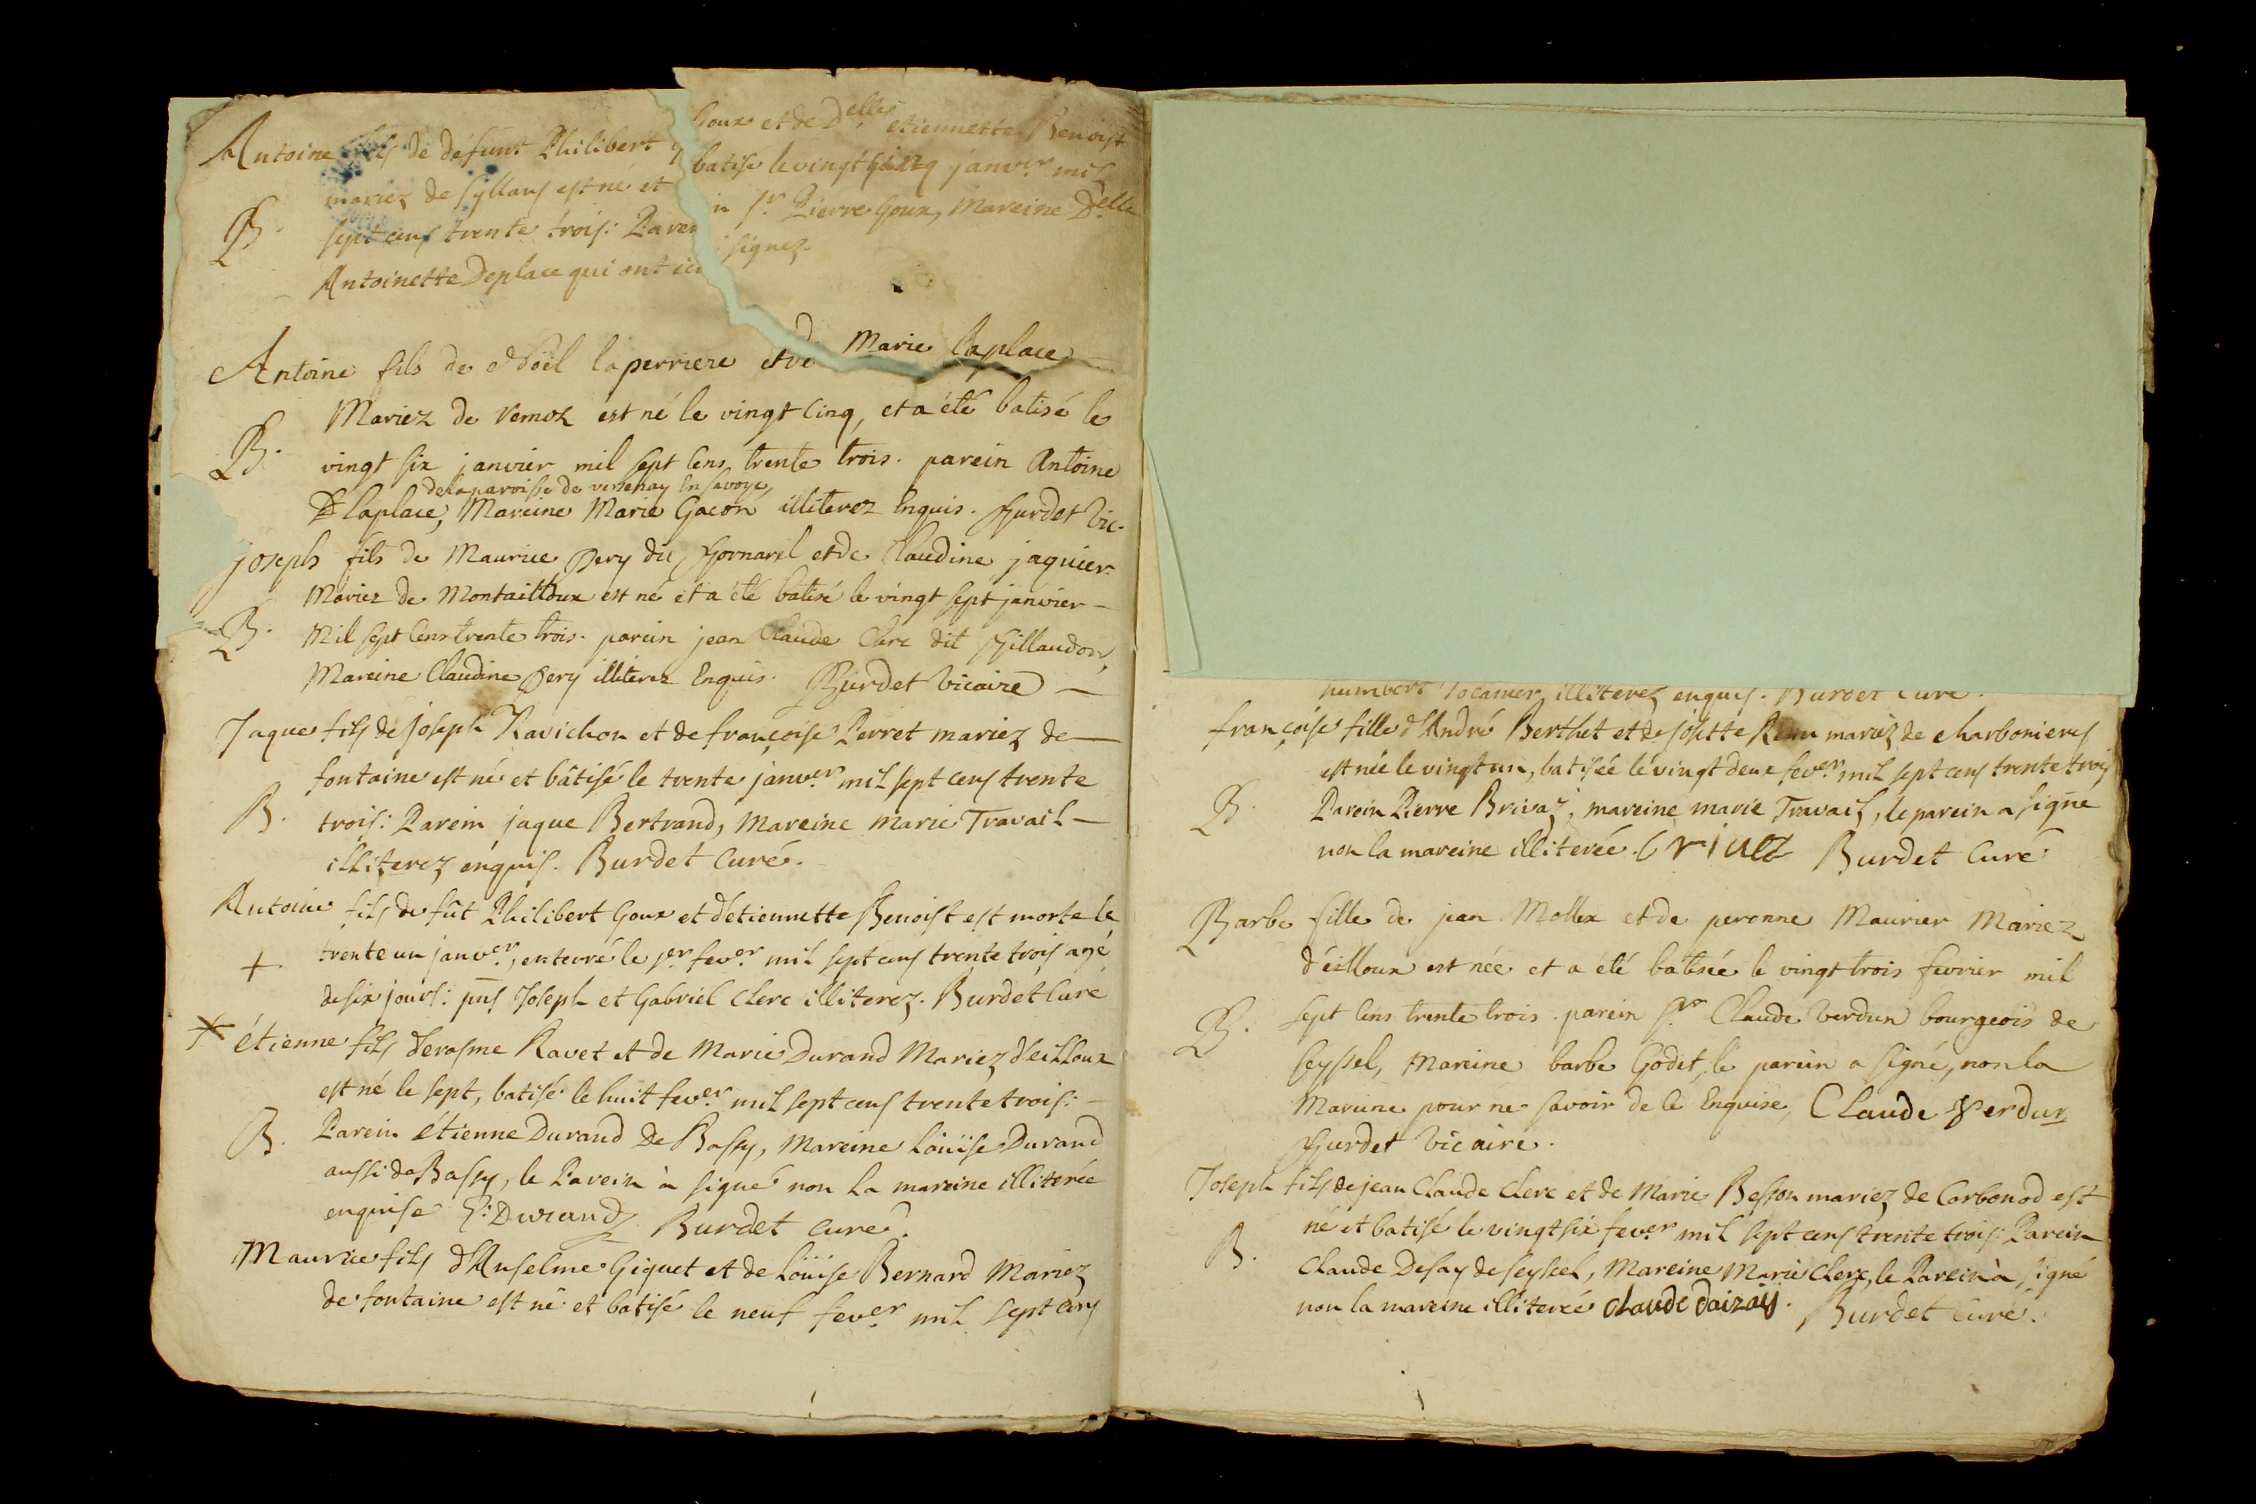 Antoine fils de défunt Philibert Goux et de Delle etiennette Benoist
mariez de Syllans est né et batise le vingt cinq janver mil
B.
sept cens trente trois: Parein sr Pierre Goux, Mareine Delle
Antoinette Deplace qui ont ici signez.
Antoine fils de Noël laperriere et de Marie laplace
Mariez de vemoz est né le vingt cinq, et a été batisé le
B.
vingt six janvier mil sept cens trente trois. parein Antoine
de la paroisse de En savoye
laplace, Mareine Marie Gacon illiterez Enquis. Burdet Vic.
joseph fils de Maurice Pery dit et de Claudine jaquier
Mariez de Montailloux est né et a été batisé le vingt sept janvier
B.
Mil sept cens trente trois. parein jean Claude Clerc dit Gillaudon,
Mareine Claudine Pery illiterez Enquis. Burdet Vicaire
Jaque fils de joseph Ravichon et de françoise Perret mariez de
fontaine est né et bâtisé le trente janver mil sept cens trente
B.
trois: Parein jaque Bertrand, Mareine Marie Travail
illiterez enquis. Burdet Curé.
Antoine fils de fût Philibert Goux et d'etiennette Benoist est morte le
trente un janver, enterré le jer fever mil sept cens trente trois agé
+
de six jours: pns Joseph et Gabriel Clerc illiterez. Burdet Curé
étienne fils d'erasme Ravet et de Marie Durand Mariez d'eilloux
est né le sept, batisé le huit fever mil sept cens trente trois:
B.
Parein étienne Durand de Bassy, Mareine Loüise Durand
aussi de Bassy, le Parein à signé non la mareine illiterée
enquise E: Durand Burdet Curé.
Maurice fils d'Anselme Giquet et de Loüise Bernard Mariez
de fontaine est né et batisé le neuf fever mil sept cens
humbert illiterez enquis. Burdet Curé.
françoise fille d'André Berthet et de josette mariez de charbonieres
est née le vingt un, batisée le vingt deux fever mil sept cens trente trois
B.
Parein Pierre Brivaz, mareine marie Travail, le parein a signé
non la mareine illiterée. Burdet Curé
Barbe fille de jean Mollex et de perenne Maurier Mariez
d'éilloux est née et a été bâtisée le vingt trois fevrier mil
B.
sept cens trente trois. parein sr Claude Verdun bourgeois de
seyssel, Mareine barbe Godet, le parein a signé, non la
Mareine pour ne savoir de ce Enquise, Claude Verdun
Burdet Vicaire.
Joseph fils de jean Claude Clerc et de Marie Besson mariez de Corbonod est
né et batisé le vingt six fever mil sept cens trente trois: Parein
B.
Claude Desay de seyssel, Mareine Marie Clerc, le Parein à signé
non la mareine illiterée claude daizay. Burdet Curé.